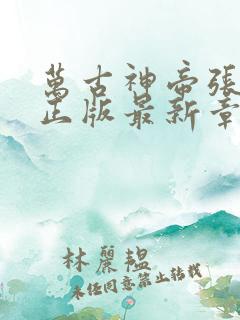 萬古神帝張
正版最新章
林麗韞
未经同意禁止转载